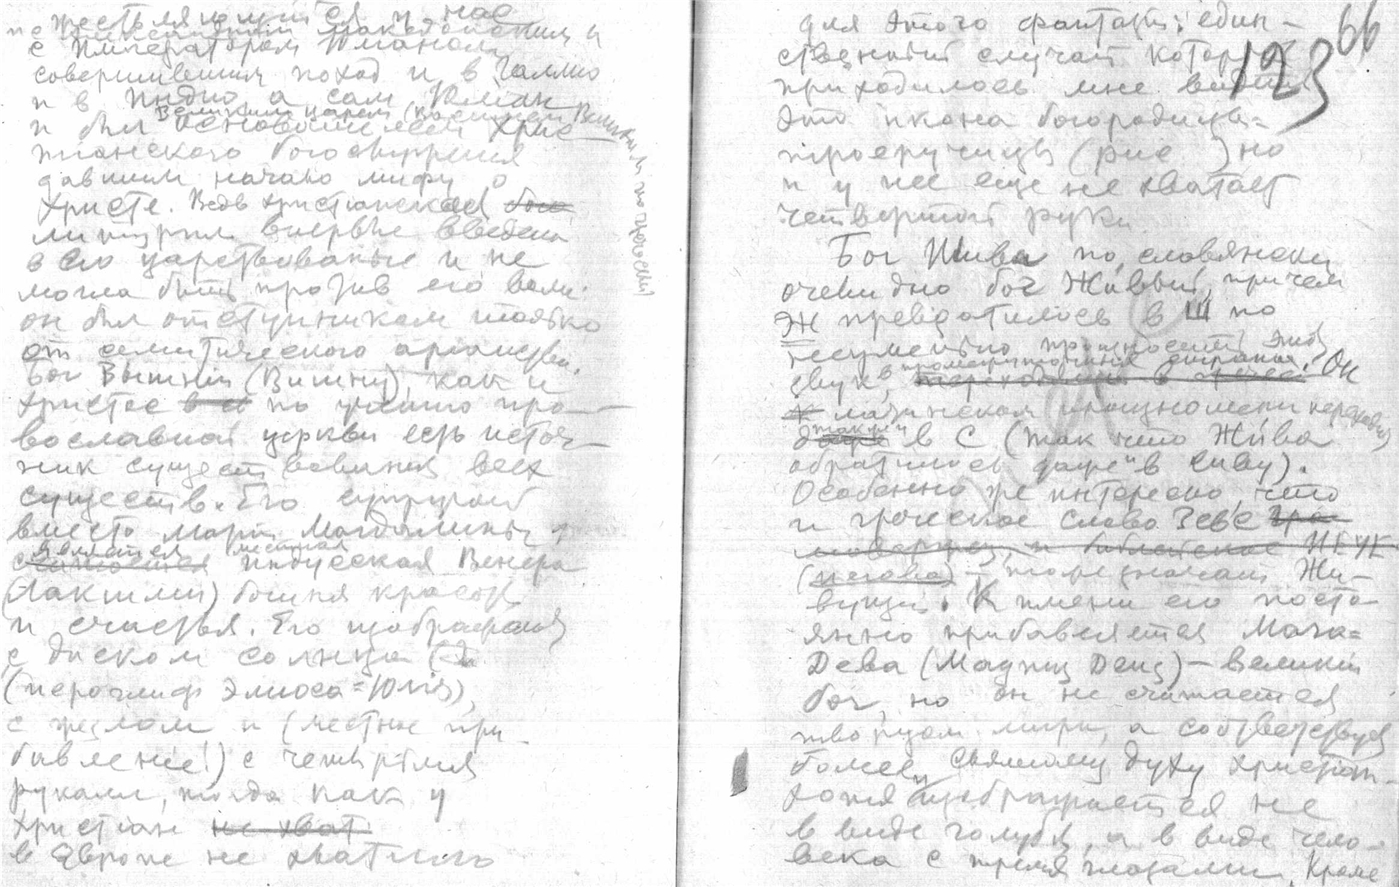 с Императором Юлианом
совершившим поход и в Галлию
и в Индию а сам Юлиан
и был основателем Хрис-
тианского богослужения
давшим начало мифу о
Христе. Ведь христианская
литургия впервые введена
в его царствование и не
могла быть против его воли.
он был отступником только
от семитического арианства.
Бог Вышний (Вишну), как и
Христос по учению пра-
вославной церкви есть источ-
ник существования всех
существ. Его супругой
вместо Марии Магдалины
является местная индусская Венера
(Лакшми) богиня красоты
и счастья. Его изображают
с диском солнца
(иероглиф Элиоса = Юлия),
с жезлом и (местное при-
бавление!) с четырьмя
руками, тогда как у
христиан не хват
в Европе не хватило
66
123
для этого фантазии: един-
ственный случай который
приходилось мне видеть
это икона богородицы-
троеручицы (рис ) но
и у нее еще не хватает
четвертой руки
Бог Шива по славянски
очевидно бог Живый, причем
Ж превратилось в Ш по
неуменью произносить этот
звук. Он
латинском произношении
в С (так что Жива
обратилось даже в Сиву).
Особенно же интересно, что
и греческое слово Зевс
тоже значит Жи-
вущий. К имени его посто-
янно прибавляется Мага-
Дева (Магнус Деус) – великий
бог, но он не считается
творцом мира, а соответствуя
более святому духу христиан-
хотя изображается не
в виде голубя, а в виде чело-
века с тремя глазами. Кроме